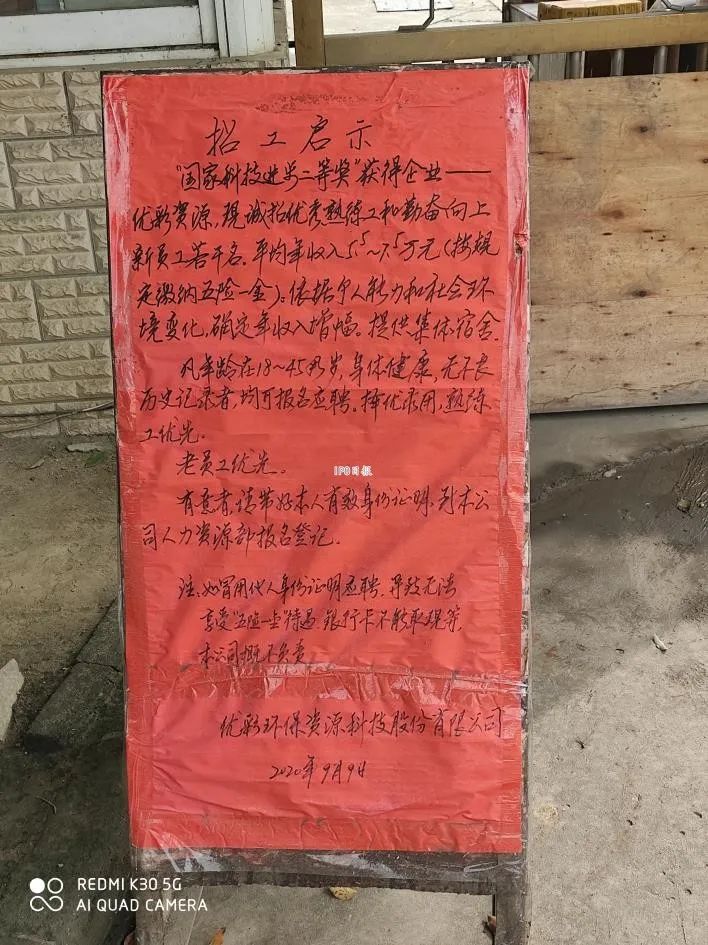 招工启示
“国家科技进步二等奖”获得企业——
优彩资源,现诚招优秀熟练工和勤奋向上
新员工若干名。平均年收入5.5~7.5万元(按规
定缴纳五险一金)。依据个人能力和社会环
境变化,确定年收入增幅。提供集体宿舍。
凡年龄在18~45周岁,身体健康,无不良
历史记录者,均可报名应聘。择优录用,熟练
工优先。
老员工优先。
IPO日报
有意者,请带好本人有效身份证明,到本公
司人力资源部报名登记。
注:如冒用他人身份证明应聘,导致无法
享受“五险一金”待遇、银行卡不能取现等,
本公司概不负责。
优彩环保资源科技股份有限公司
2020年9月9日
REDMI K30 5G
AI QUAD CAMERA